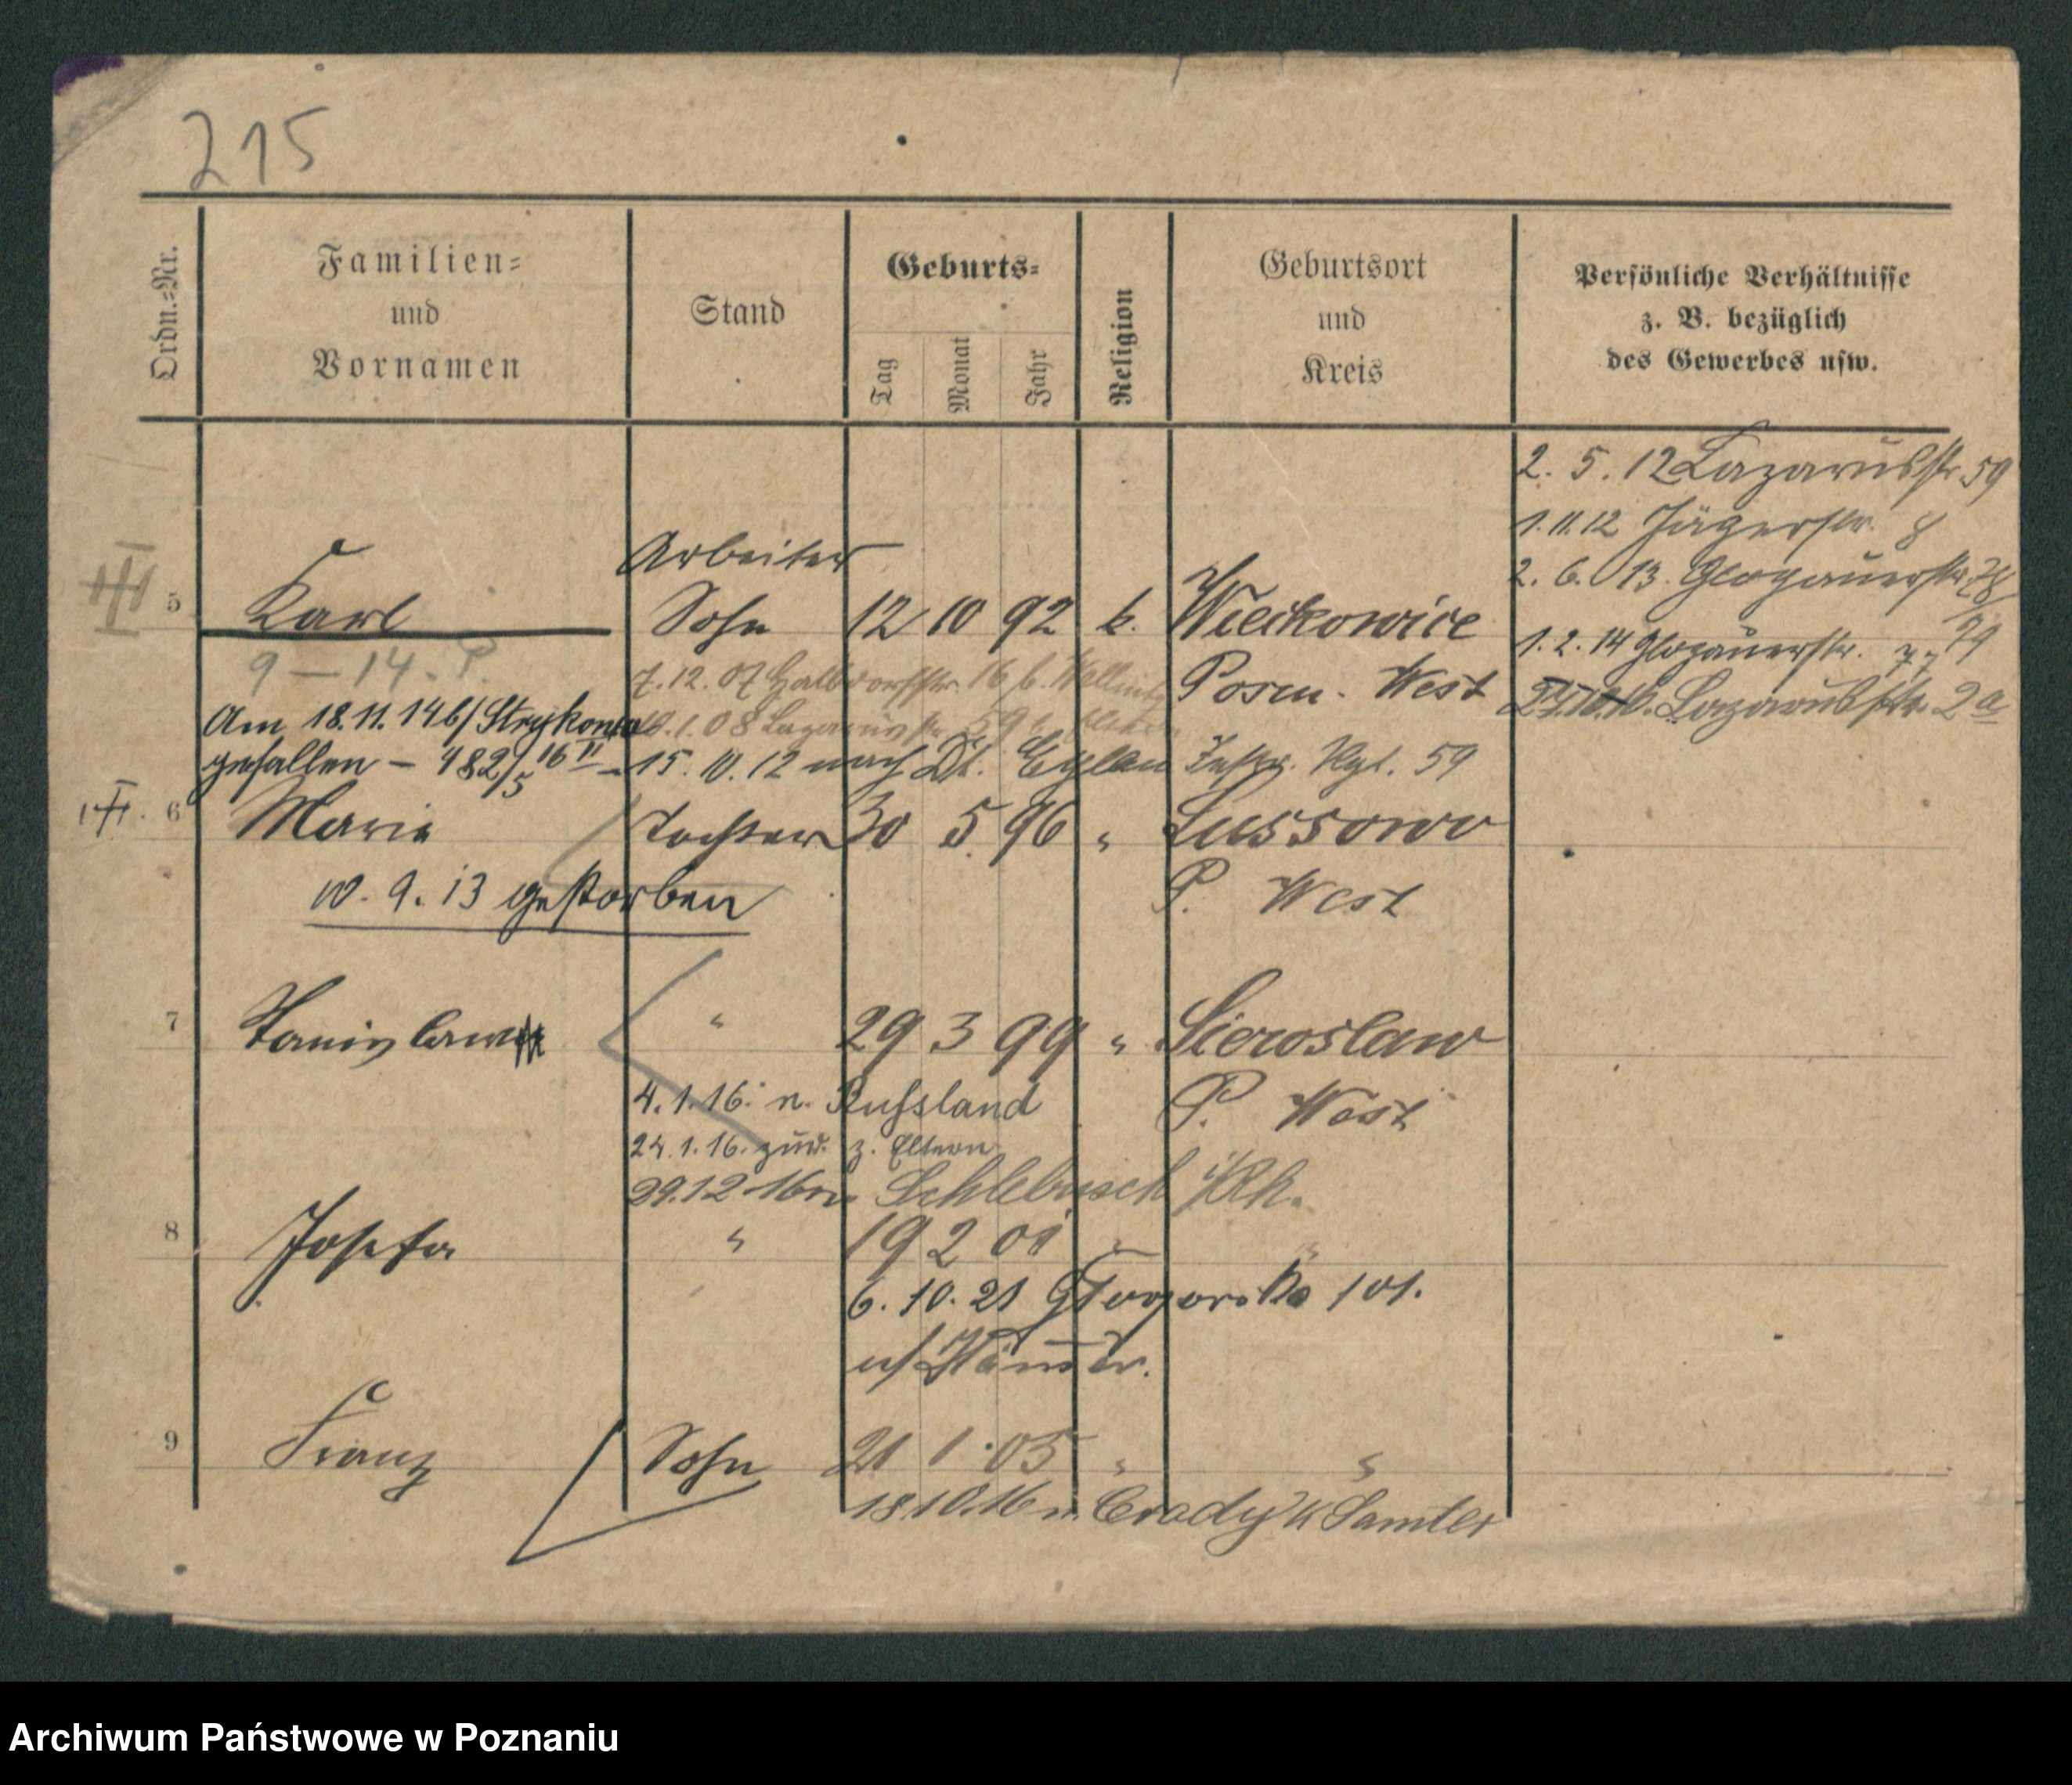 215
Ordn.-Nr.
Familien-
und
Vornamen
Stand
Geburts-
Tag
Monat
Jahr
Religion
Geburtsort
und
Kreis
Persönliche Verhältnisse
z. B. bezüglich
des Gewerbes usw.
2. 5. 12 Lazarusstr. 59
1. 11. 12 Jägerstr. 8
2. 6. 13. Glogauerstr. 78
1. 2. 14 Glogauerstr. 77
79
Lazarusstr. 2a
Arbeiter
5 Karl Sohn 12 10 92 k. Wieckowice
9 – 14. P.
7. 12. 07 Halbdorfstr. 16 b.
Posen. West
Am 18.11.14 b/ Strykow
1. 08 Lazarusstr. 59
gefallen – 482/5 16 II
15. 10. 12 nach Dt. Eylau Inftr. Rgt. 59
6 Marie Tochter 30 5 96 " Lussowo
10. 9. 13 gestorben
P. West
7 Stanislaw " 29 3 99 " Sieroslaw
4. 1. 16. n. Russland
P. West
24. 1. 16. zur. z. Eltern
29.12 16 n. Schlebusch i/Rh.
8 Josefa " 19 2 01 "
6. 10. 21 Głogowska 101.
9 Franz Sohn 21 1 05 " "
18 10.16 n. Brody K Samter
Archiwum Państwowe w Poznaniu